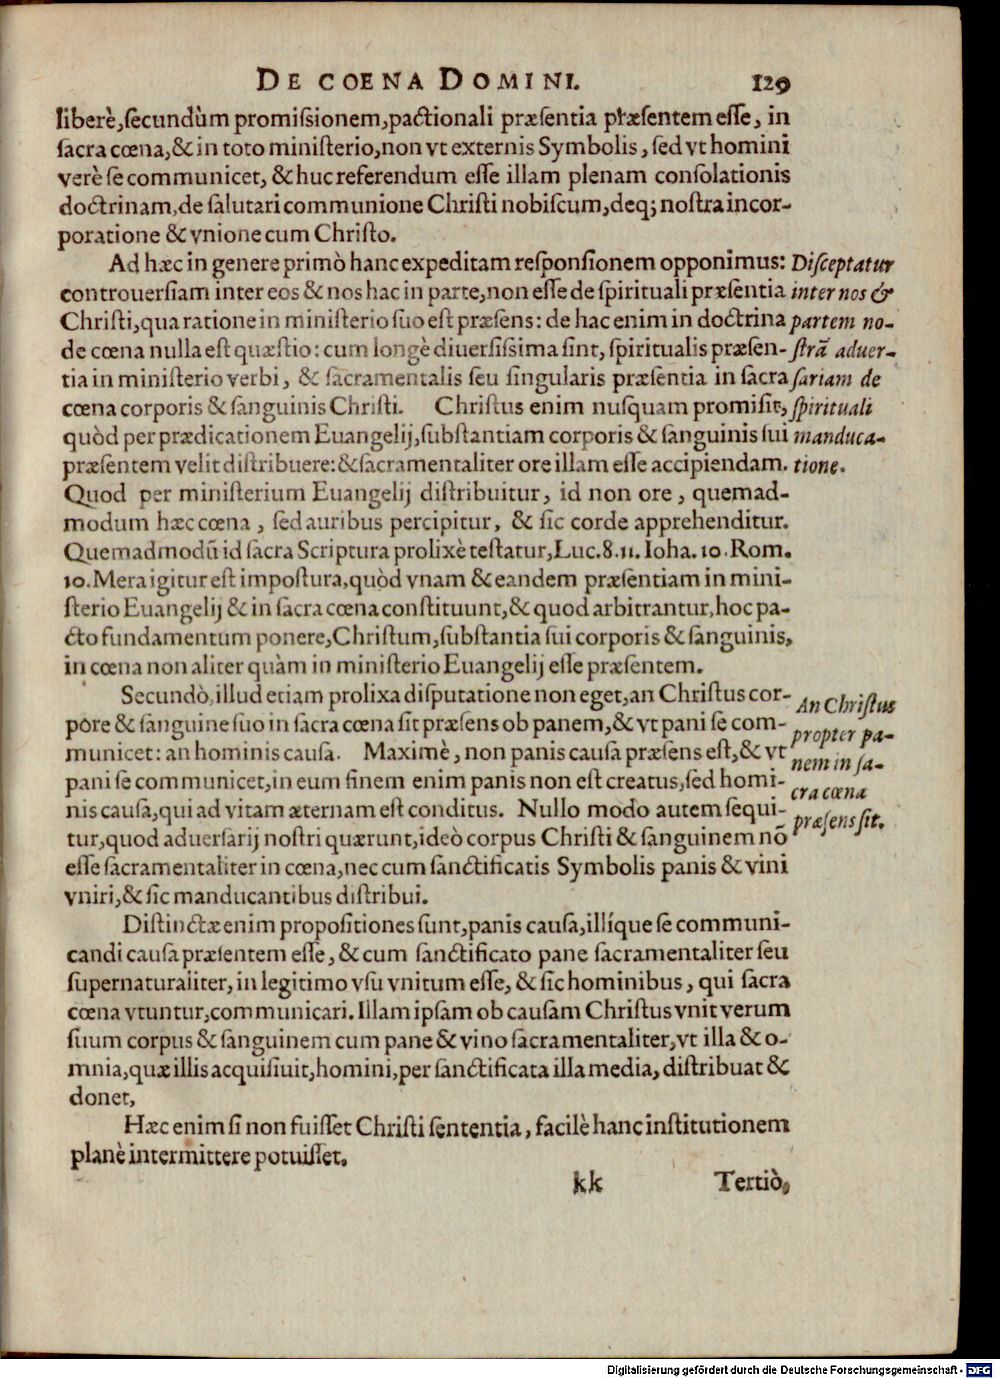 DE COENA DOMINI. 129
liberè, secundùm promissionem, pactionali præsentia præsentem esse, in
sacra cœna, & in toto ministerio, non vt externis Symbolis, sed vt homini
verè se communicet, & huc referendum esse illam plenam consolationis
doctrinam, de salutari communione Christi nobiscum, deq; nostra incor-
poratione & vnione cum Christo.
Ad hæc in genere primò hanc expeditam responsionem opponimus:
controuersiam inter eos & nos hac in parte, non esse de spirituali præsentia
Christi, qua ratione in ministerio suo est præsens: de hac enim in doctrina
de cœna nulla est quæstio: cum longè diuersissima sint, spiritualis præsen-
tia in ministerio verbi, & sacramentalis seu singularis præsentia in sacra
cœna corporis & sanguinis Christi. Christus enim nusquam promisit,
quòd per prædicationem Euangelij, substantiam corporis & sanguinis sui
præsentem velit distribuere: & sacramentaliter ore illam esse accipiendam.
Disceptatur
inter nos &
partem no-
strã aduer-
sariam de
spirituali
manduca-
tione.
Quod per ministerium Euangelij distribuitur, id non ore, quemad-
modum hæc cœna, sed auribus percipitur, & sic corde apprehenditur.
Quemadmodũ id sacra Scriptura prolixè testatur, Luc. 8. 11. Ioha. 10. Rom.
10. Mera igitur est impostura, quòd vnam & eandem præsentiam in mini-
sterio Euangelij & in sacra cœna constituunt, & quod arbitrantur, hoc pa-
cto fundamentum ponere, Christum, substantia sui corporis & sanguinis,
in cœna non aliter quàm in ministerio Euangelij esse præsentem.
Secundò, illud etiam prolixa disputatione non eget, an Christus cor-
pore & sanguine suo in sacra cœna sit præsens ob panem, & vt pani se com-
municet: an hominis causa. Maximè, non panis causa præsens est, & vt
pani se communicet, in eum finem enim panis non est creatus, sed homi-
nis causa, qui ad vitam æternam est conditus. Nullo modo autem sequi-
tur, quod aduersarij nostri quærunt, ideò corpus Christi & sanguinem nõ
esse sacramentaliter in cœna, nec cum sanctificatis Symbolis panis & vini
vniri, & sic manducantibus distribui.
An Christus
propter pa-
nem in sa-
cra cœna
præsens sit.
Distinctæ enim propositiones sunt, panis causa, illíque se communi-
candi causa præsentem esse, & cum sanctificato pane sacramentaliter seu
supernaturaliter, in legitimo vsu vnitum esse, & sic hominibus, qui sacra
cœna vtuntur, communicari. Illam ipsam ob causam Christus vnit verum
suum corpus & sanguinem cum pane & vino sacramentaliter, vt illa & o-
mnia, quæ illis acquisiuit, homini, per sanctificata illa media, distribuat &
donet,
Hæc enim si non fuisset Christi sententia, facilè hanc institutionem
planè intermittere potuisset.
kk Tertiò,
Digitalisierung gefördert durch die Deutsche Forschungsgemeinschaft - DFG